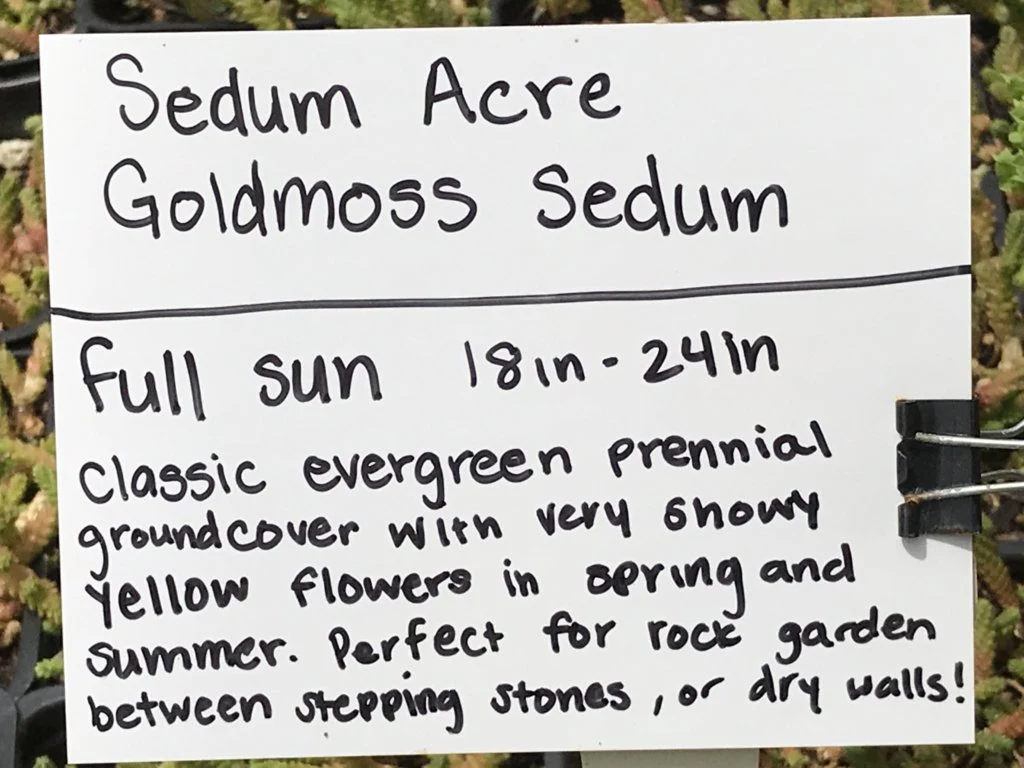 Sedum Acre
Goldmoss Sedum
full sun 18in - 24in
Classic evergreen prennial
groundcover with very showy
yellow flowers in spring and
summer. Perfect for rock garden
between stepping stones, or dry walls!